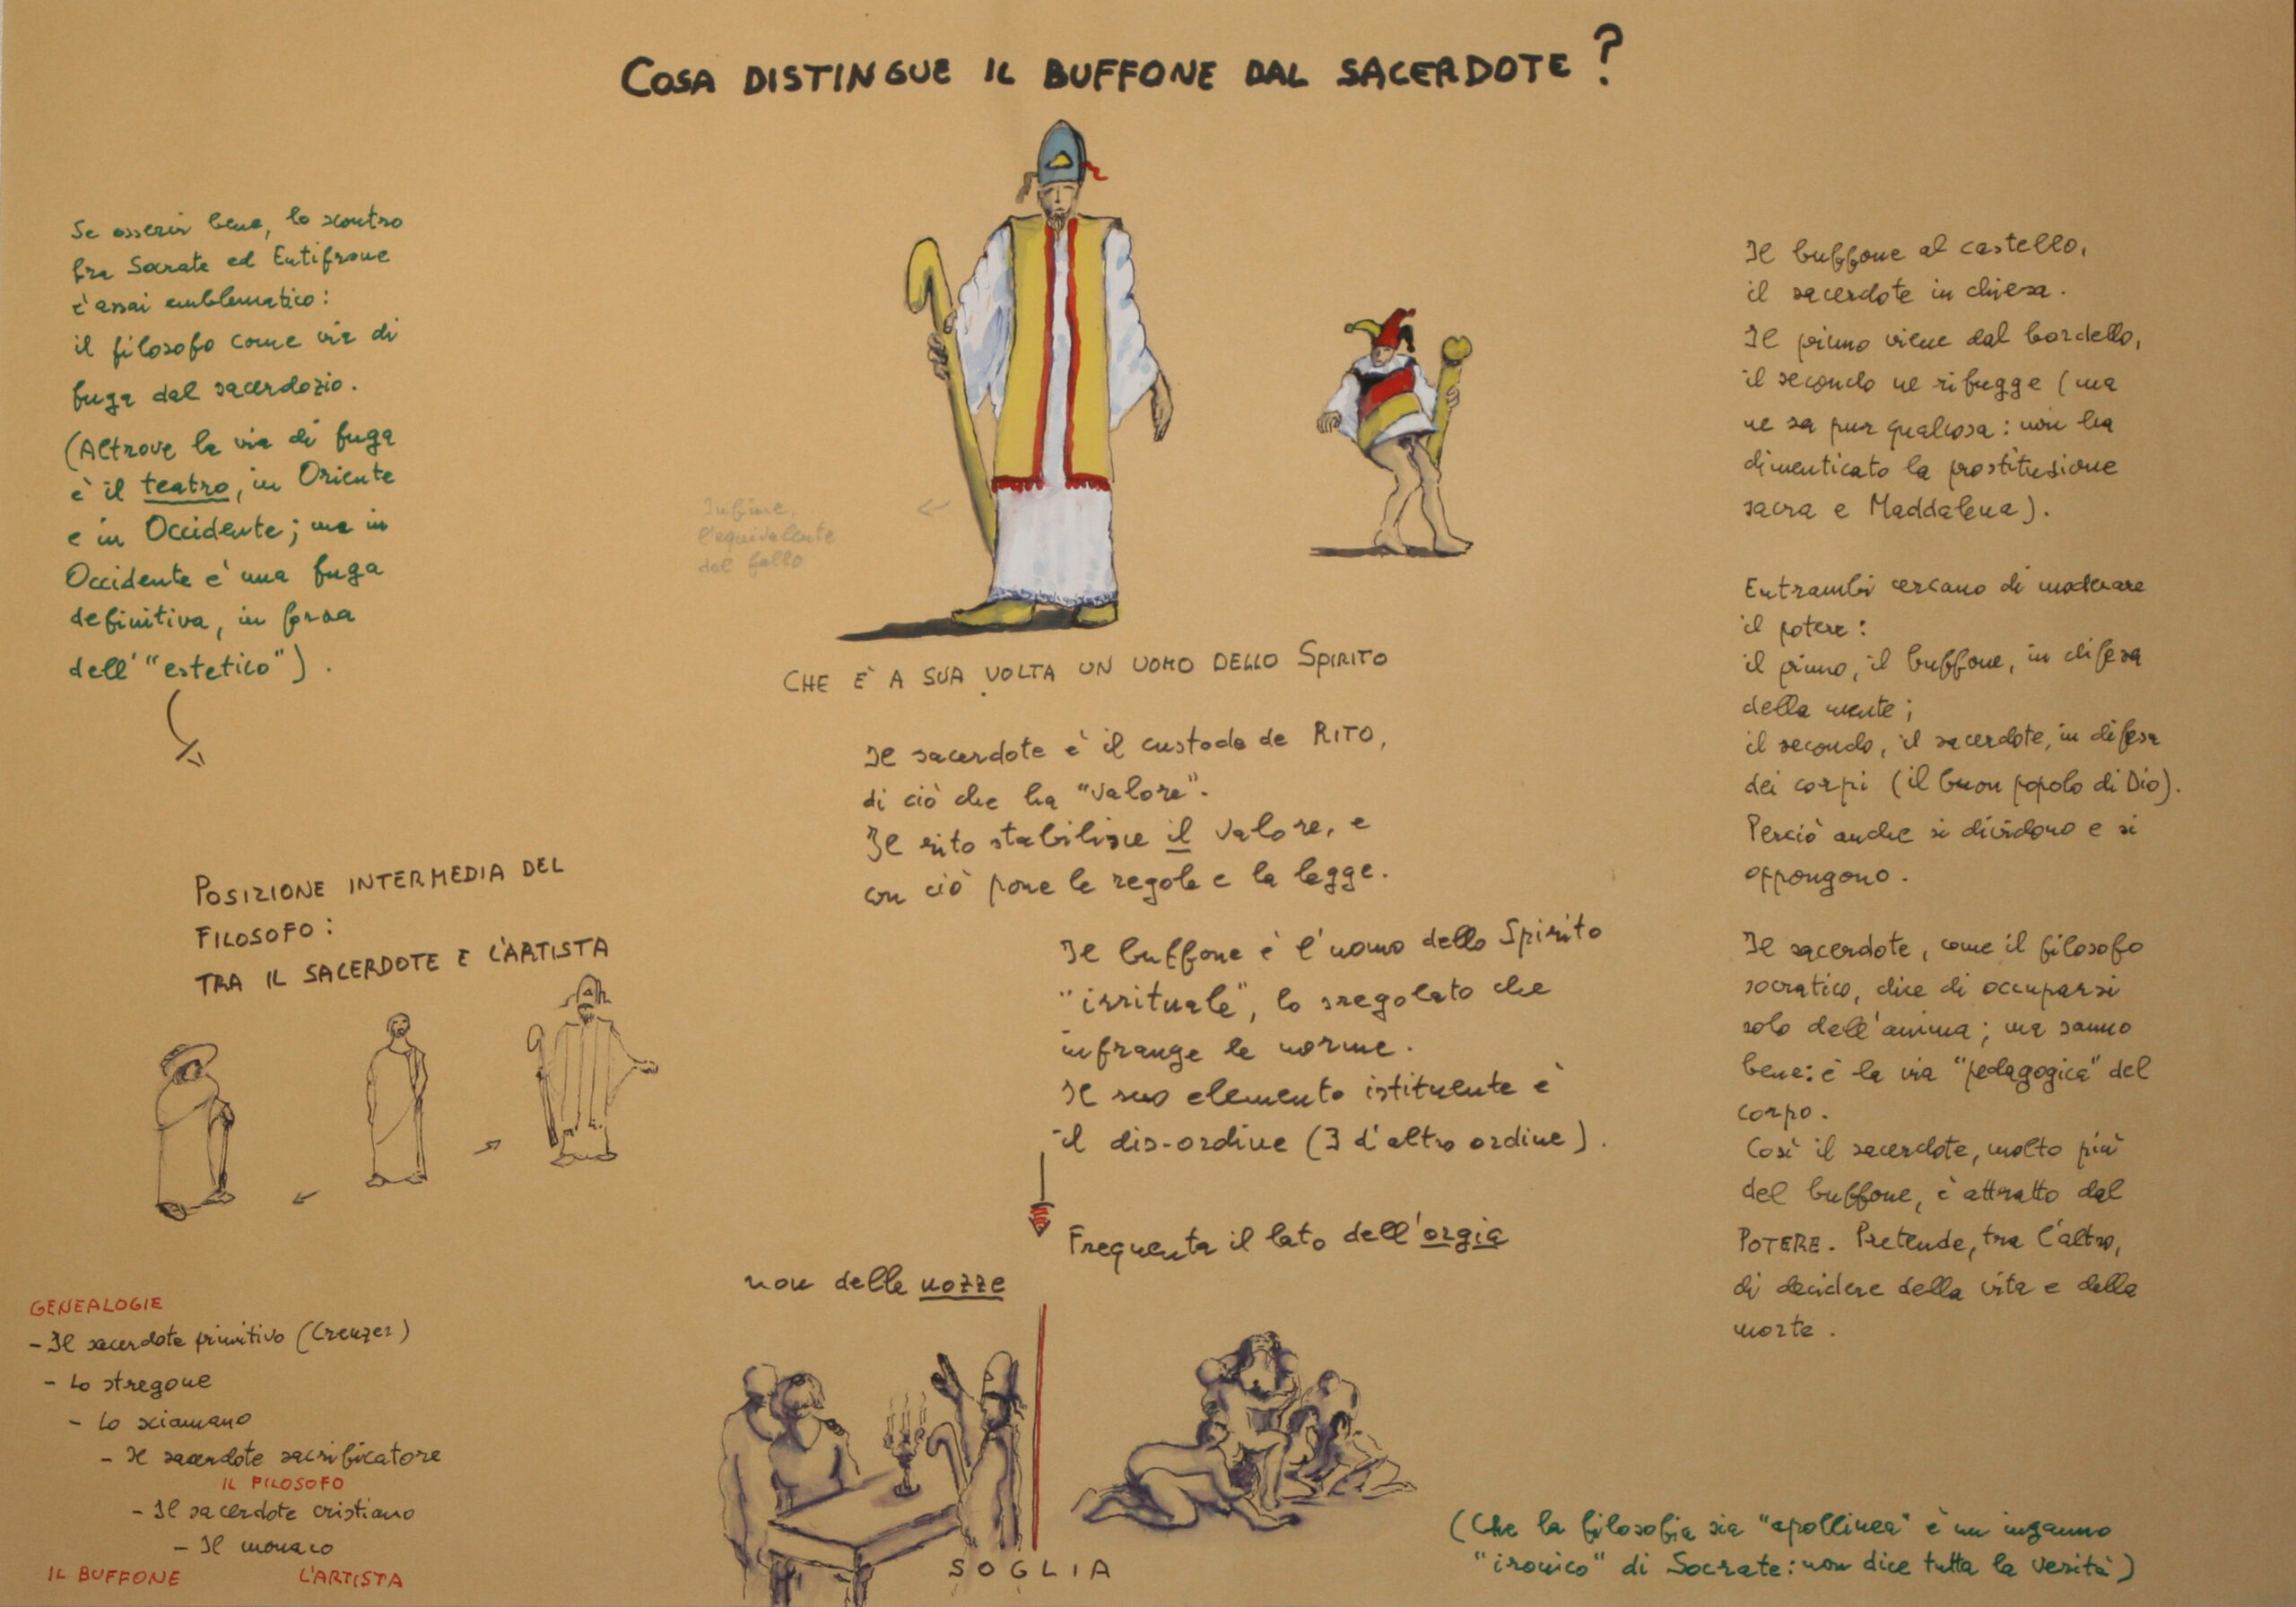 COSA DISTINGUE IL BUFFONE DAL SACERDOTE?
Se osservi bene, lo scontro
fra Socrate ed Eutifrone
è assai emblematico:
il filosofo come via di
fuga dal sacerdozio.
(Altrove la via di fuga
è il teatro, in Oriente
e in Occidente; ma in
Occidente è una fuga
definitiva, in forza
dell'"estetico").
POSIZIONE INTERMEDIA DEL
FILOSOFO:
TRA IL SACERDOTE E L'ARTISTA
GENEALOGIE
- Il sacerdote primitivo (Creuzer)
- Lo stregone
- Lo sciamano
- Il sacerdote sacrificatore
IL FILOSOFO
- Il sacerdote cristiano
- Il monaco
IL BUFFONE L'ARTISTA
Infine,
l'equivalente
del fallo
CHE È A SUA VOLTA UN UOMO DELLO SPIRITO
Il sacerdote è il custode de RITO,
di ciò che ha "valore".
Il rito stabilisce il valore, e
con ciò pone le regole e la legge.
Il buffone è l'uomo dello Spirito
"irrituale", lo sregolato che
infrange le norme.
Il suo elemento istituente è
il dis-ordine (I d'altro ordine).
Frequenta il lato dell'orgia
non delle nozze
SOGLIA
Il buffone al castello,
il sacerdote in chiesa.
Il primo viene dal bordello,
il secondo ne rifugge (ma
ne sa pur qualcosa: non ha
dimenticato la prostituzione
sacra e Maddalena).
Entrambi cercano di moderare
il potere:
il primo, il buffone, in difesa
della mente;
il secondo, il sacerdote, in difesa
dei corpi (il buon popolo di Dio).
Perciò anche si dividono e si
oppongono.
Il sacerdote, come il filosofo
socratico, dice di occuparsi
solo dell'anima; ma sanno
bene: è la via "pedagogica" del
corpo.
Così il sacerdote, molto più
del buffone, è attratto dal
POTERE. Pretende, tra l'altro,
di decidere della vita e della
morte.
(Che la filosofia sia "apollinea" è un inganno
"ironico" di Socrate: non dice tutta la verità)